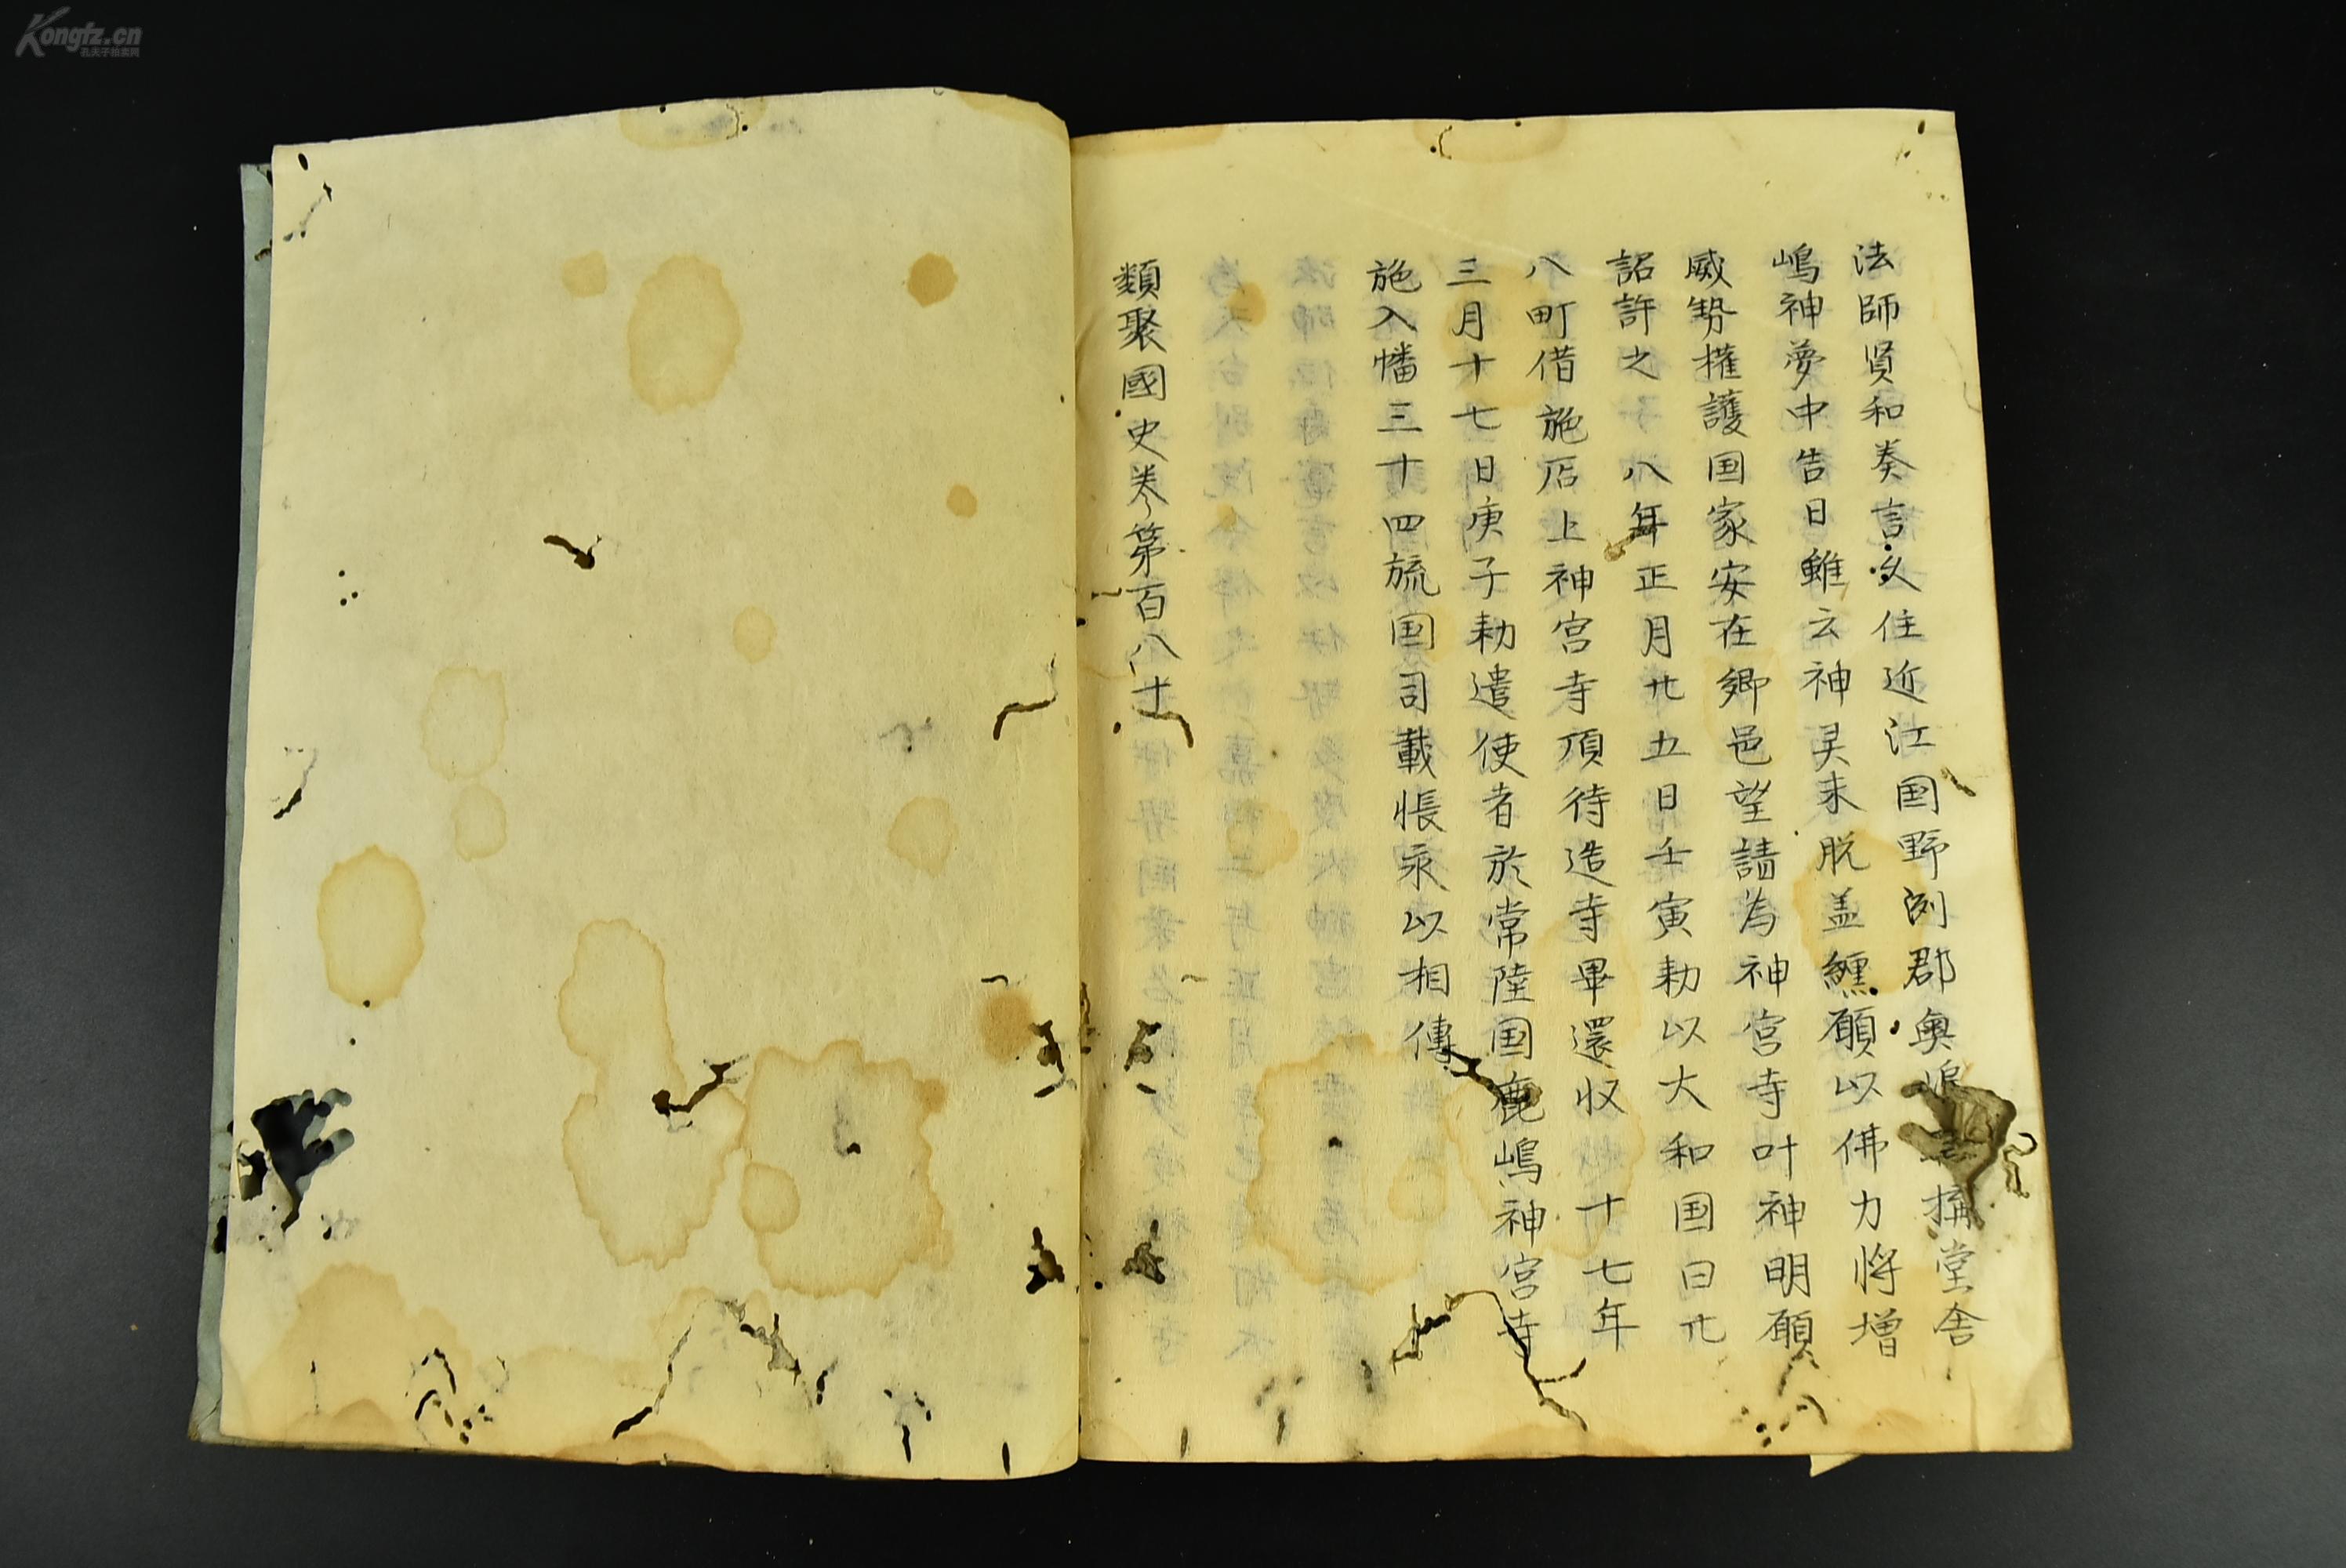 法師賢和奏言久住近江国野洌郡奥嶋搆堂舎
嶋神夢中告曰雖云神灵未脱盖纒願以佛力将増
威勢擁護国家安在郷邑望請為神宮寺叶神明願
詔許之 八年正月廿五日壬寅勅以大和国白卅
八町借施石上神宮寺頂待造寺畢還収 十七年
三月十七日庚子勅遣使者於常陸国鹿嶋神宮寺
施入幡三十四旒国司載帳永以相傳
類聚國史巻第百八十
Kongfz.cn
孔夫子拍卖网